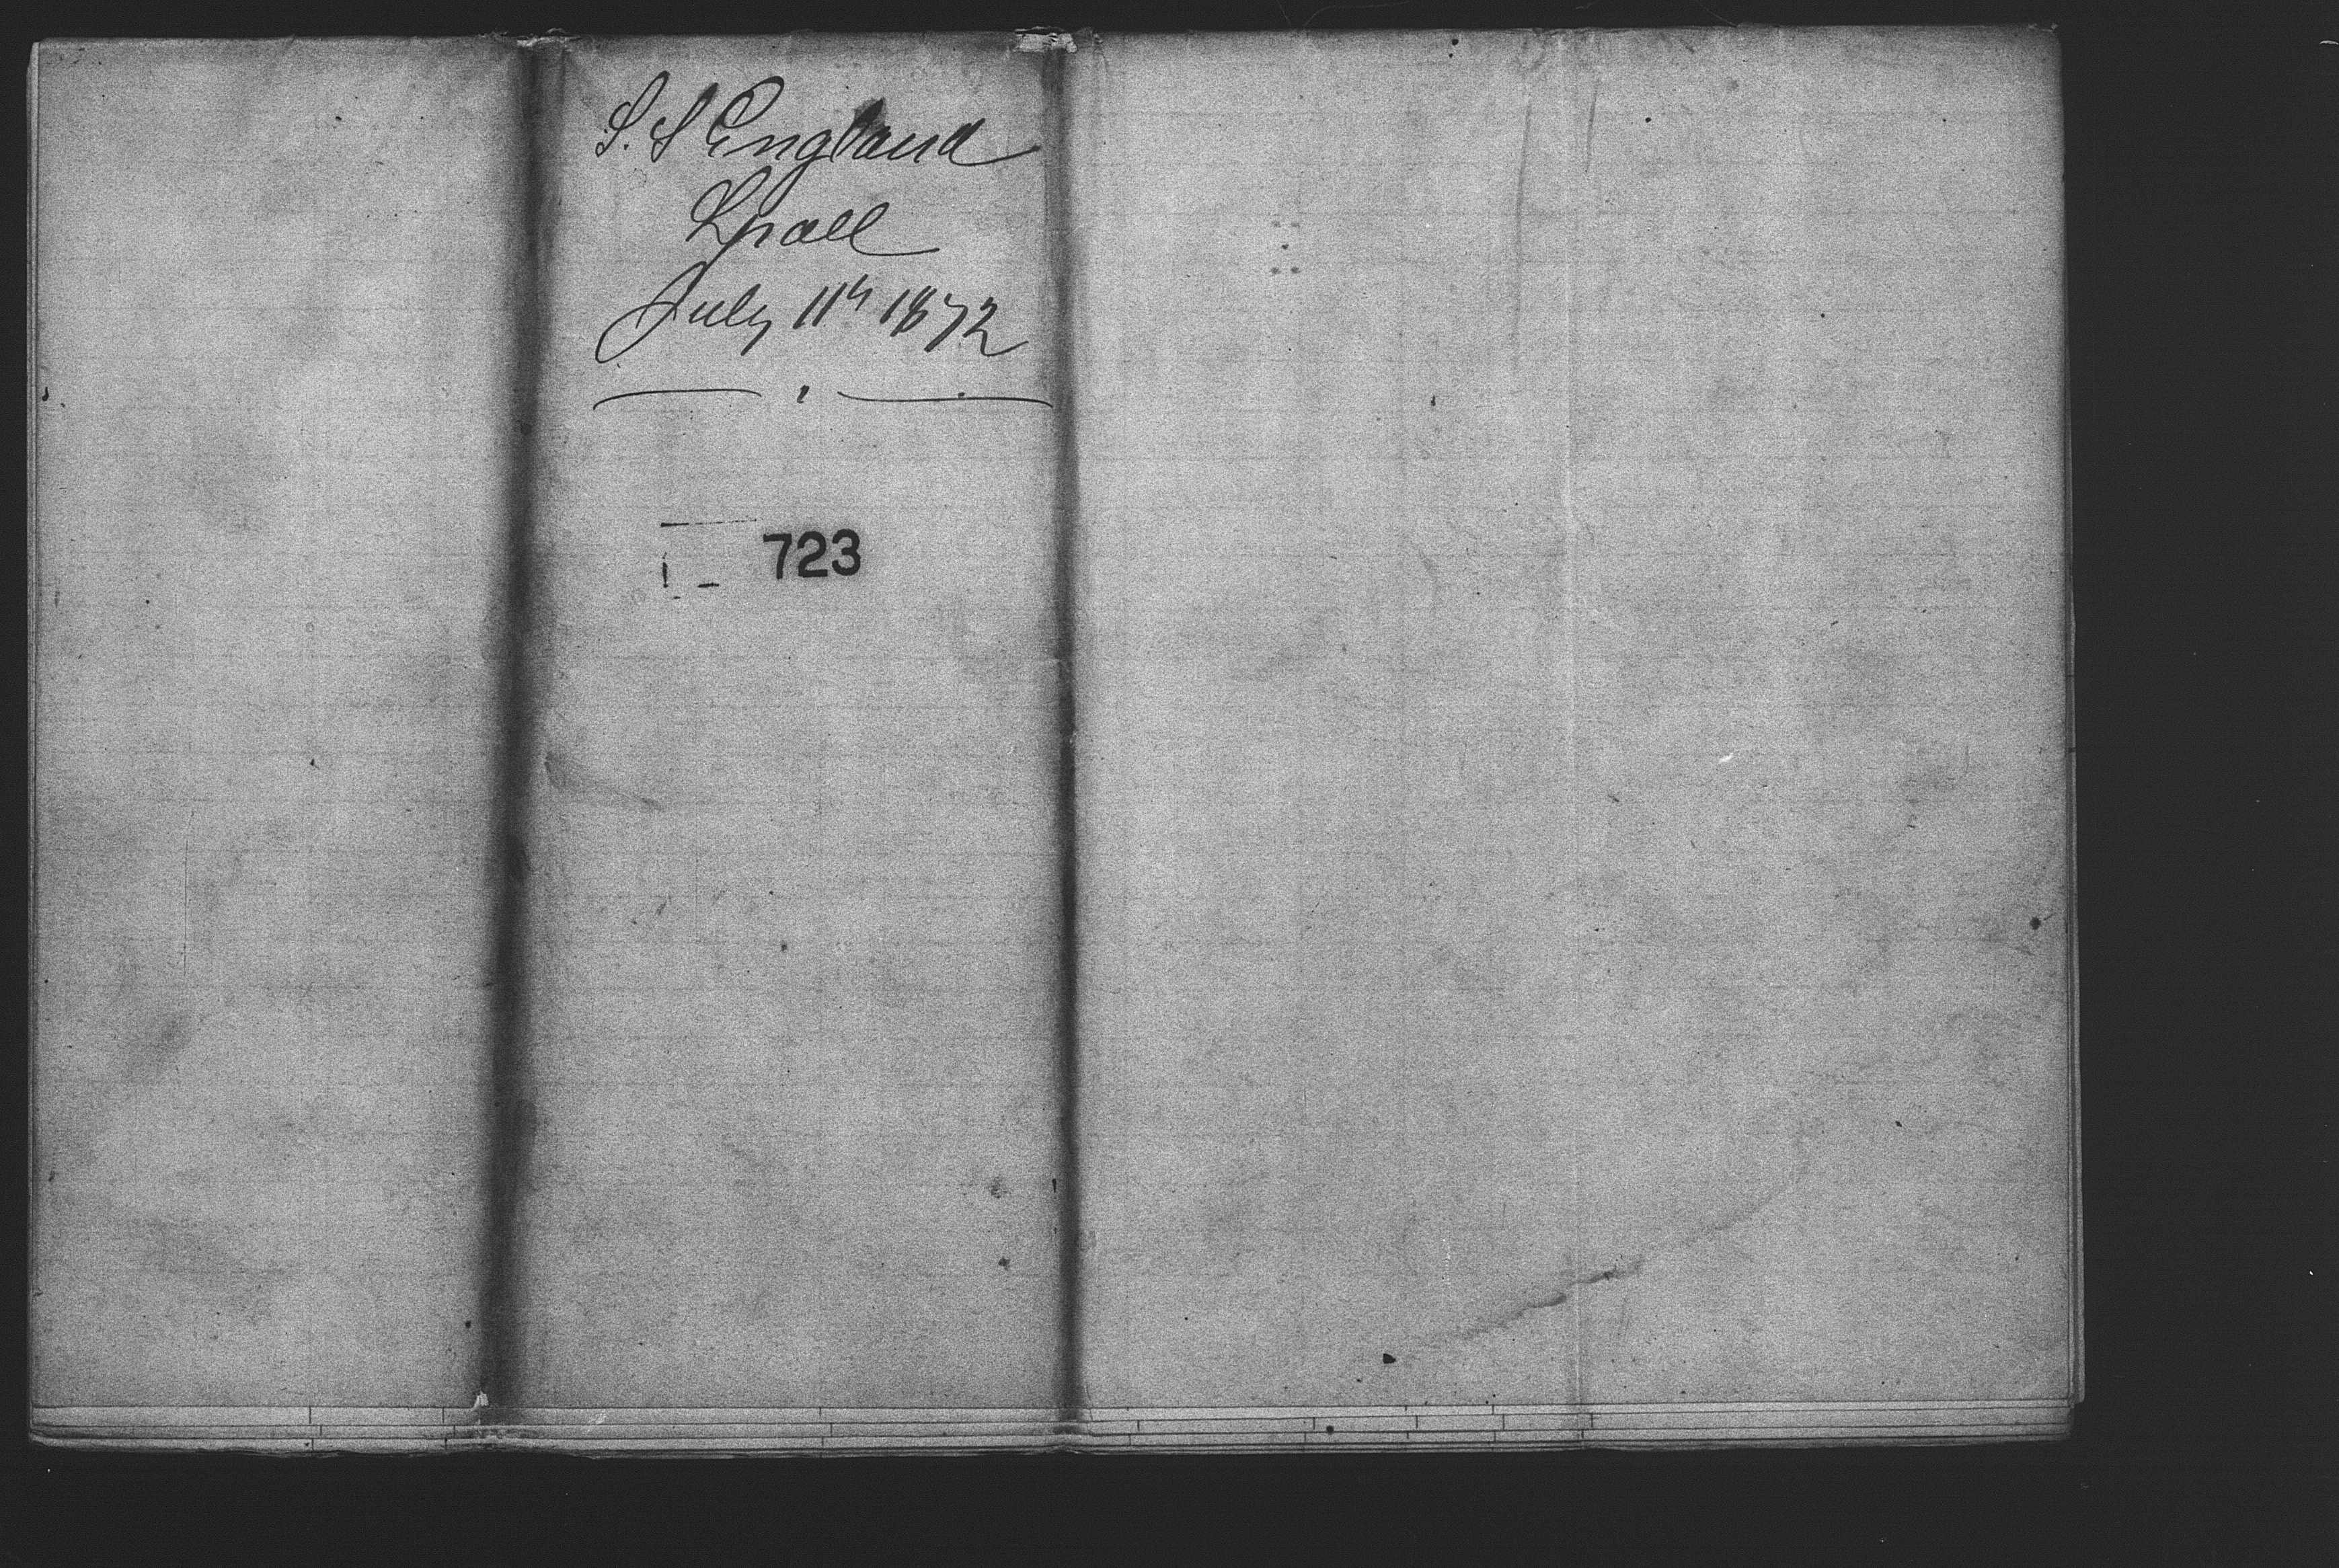 S. S England
Lpool
July 11th 1872
723